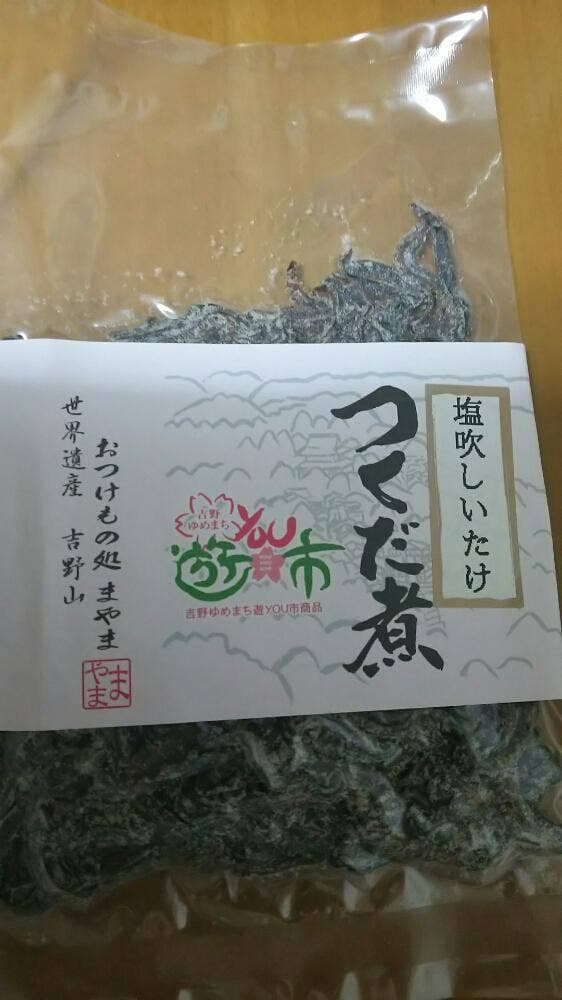 塩吹しいたけ
つくだ煮
吉野
ゆめまち
遊YOU市
吉野ゆめまち遊YOU市商品
おつけもの処 まやま
世界遺産 吉野山
まやま